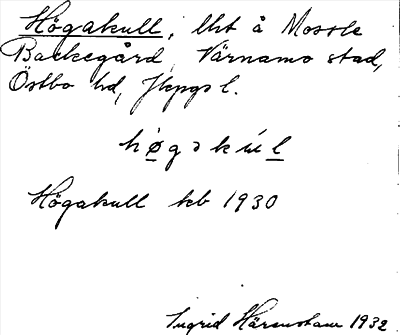 Högakull, lht å Mossle
Backegård, Värnamo stad,
Östbo hd, Jkpgs l.
høgəkul
Högakull kb 1930
Ingrid Härenstam 1932